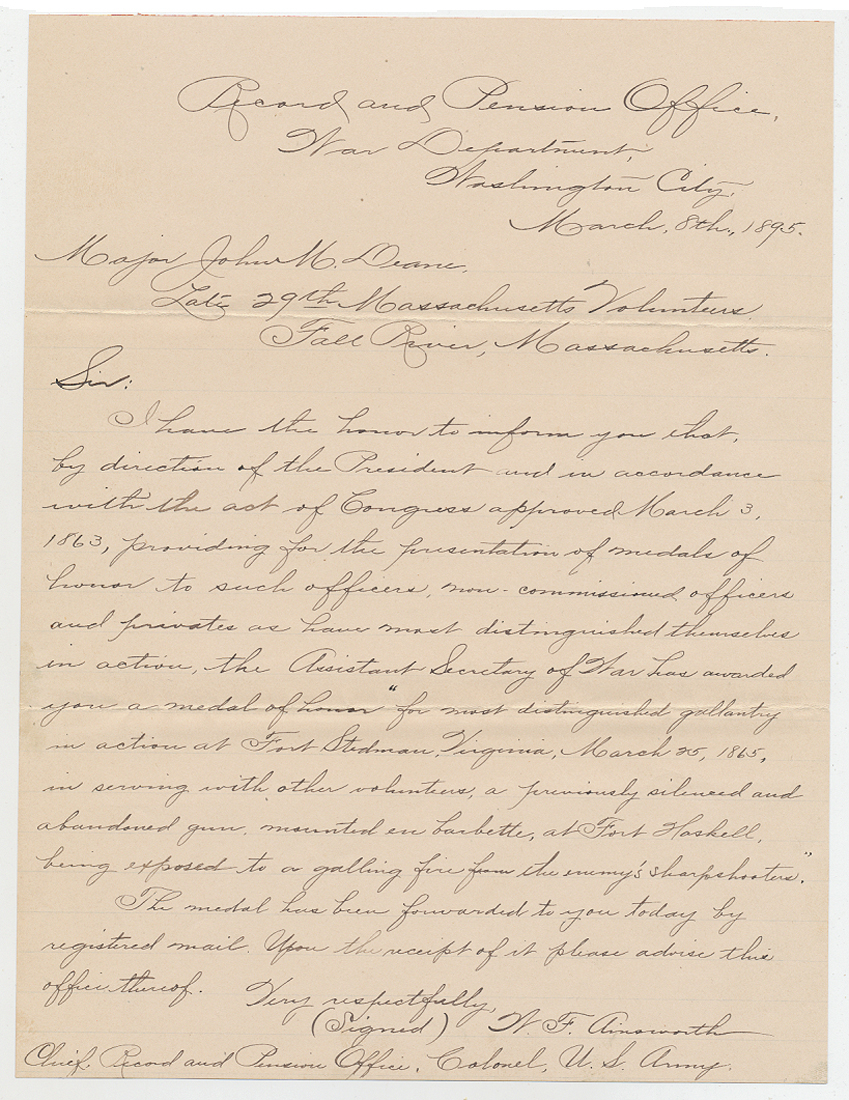 Record and Pension Office,
War Department,
Washington City,
March, 8th., 1895.
Major John M. Deane,
Late 29th Massachusetts Volunteers.
Fall River, Massachusetts.
Sir:
I have the honor to inform you that,
by direction of the President and in accordance
with the act of Congress approved March 3,
1863, providing for the presentation of medals of
honor to such officers, non-commissioned officers
and privates as have most distinguished themselves
in action, the Assistant Secretary of War has awarded
you a medal of honor "for most distinguished gallantry
in action at Fort Stedman, Virginia, March 25, 1865,
in serving with other volunteers, a previously silenced and
abandoned gun, mounted en barbette, at Fort Haskell,
being exposed to a galling fire from the enemy's sharpshooters."
The medal has been forwarded to you today by
registered mail. Upon the receipt of it please advise this
office thereof.
Very respectfully,
(Signed) W. F. Ainsworth
Chief, Record and Pension Office, Colonel, U. S. Army.